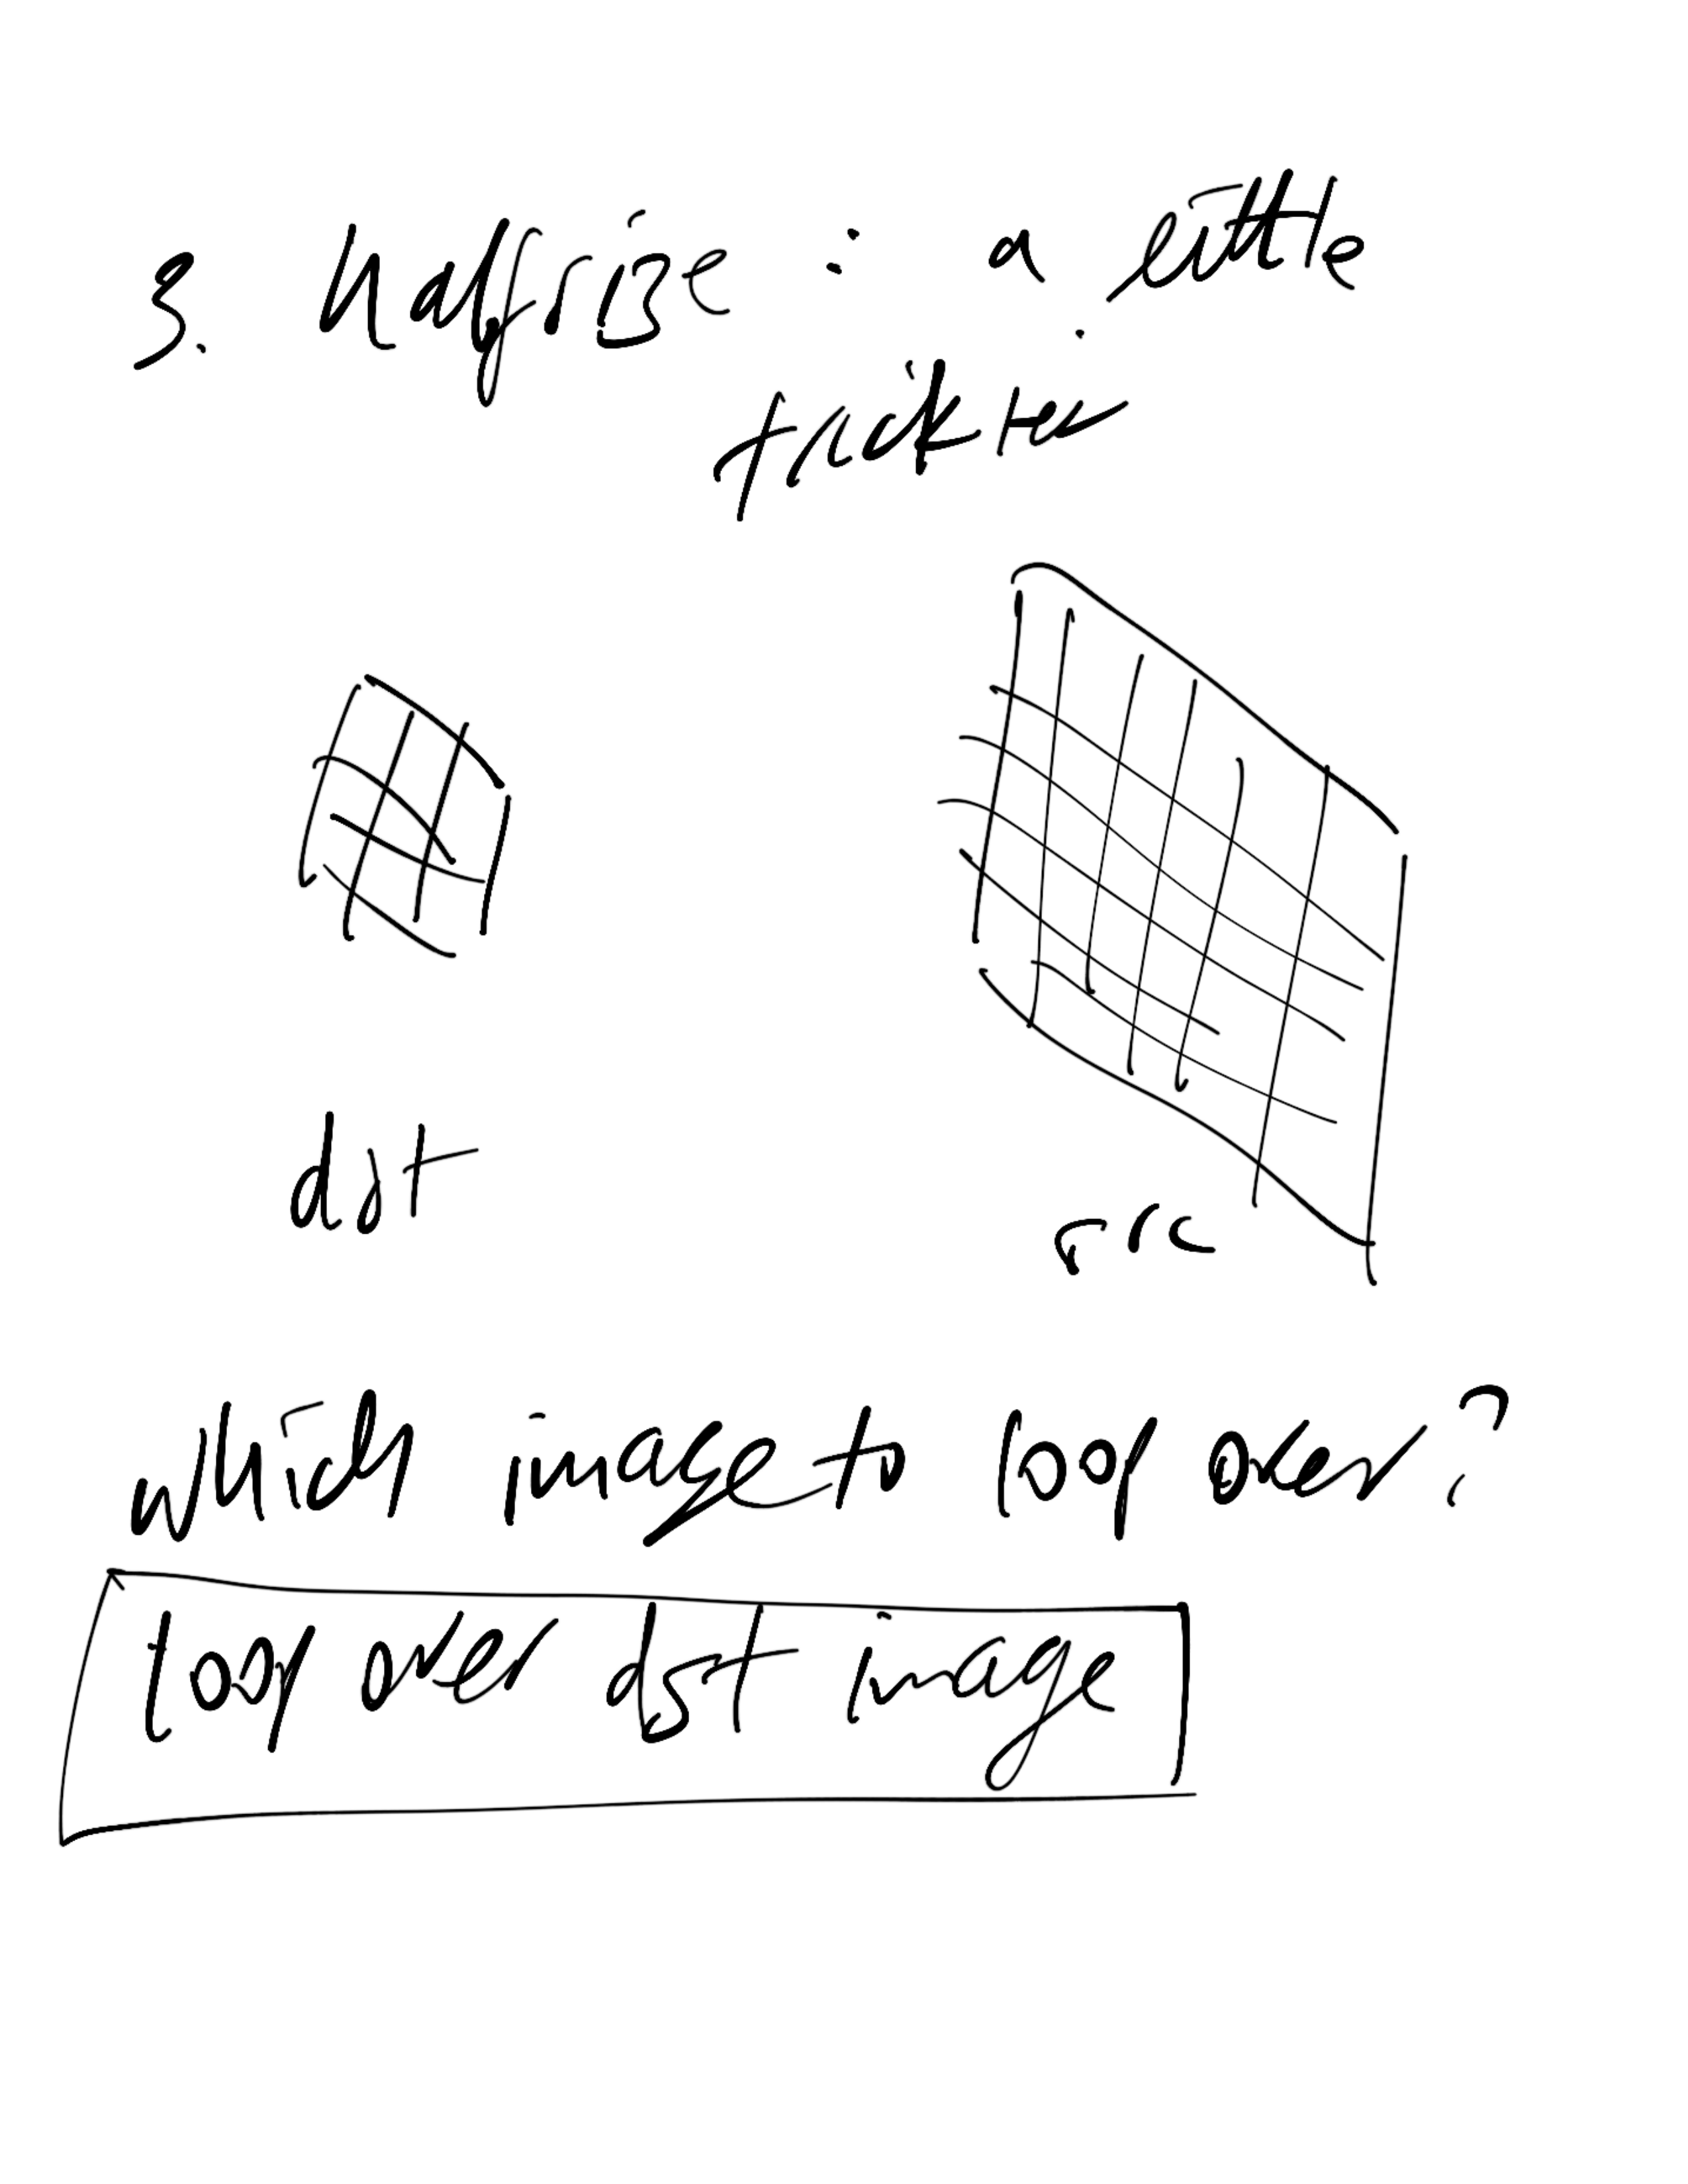 3. Halfsize : a little
trickier
dst
src
which image to loop over?
loop over dst image